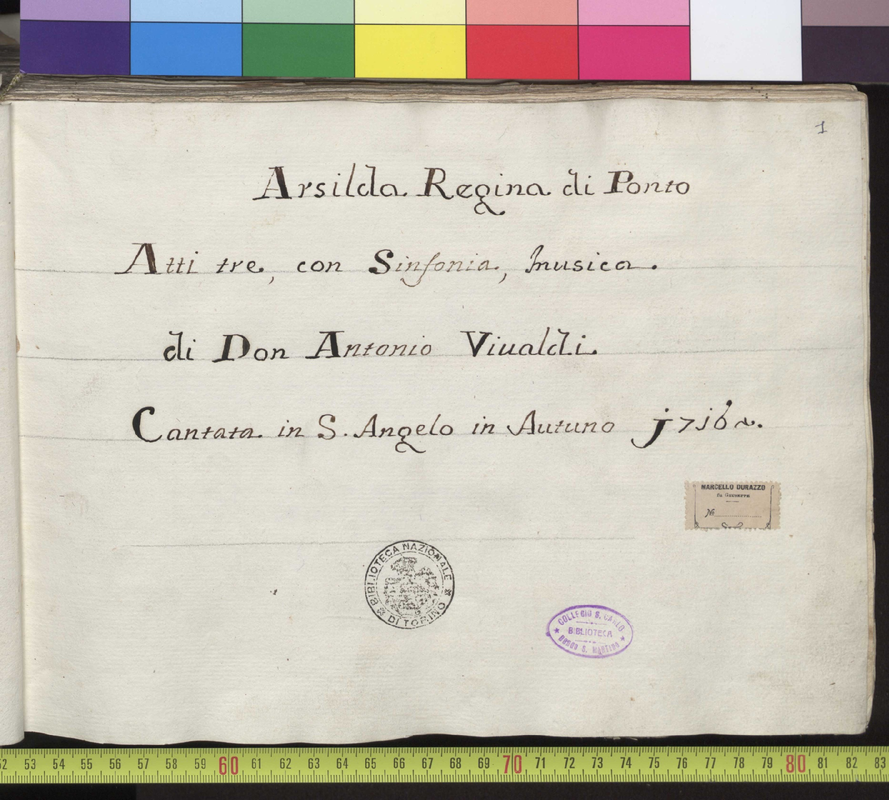 1
Arsilda Regina di Ponto
Atti tre, con Sinfonia, musica.
di Don Antonio Viualdi.
Cantata in S. Angelo in Autuno j7j6
MARCELLO DURAZZO
di Giovanni
№
BIBLIOTECA NAZIONALE
DI TORINO
COLLEGIO S. CARLO
BIBLIOTECA
BORGO S. MARTINO
52 53 54 55 56 57 58 59 60 61 62 63 64 65 66 67 68 69 70 71 72 73 74 75 76 77 78 79 80 81 82 83